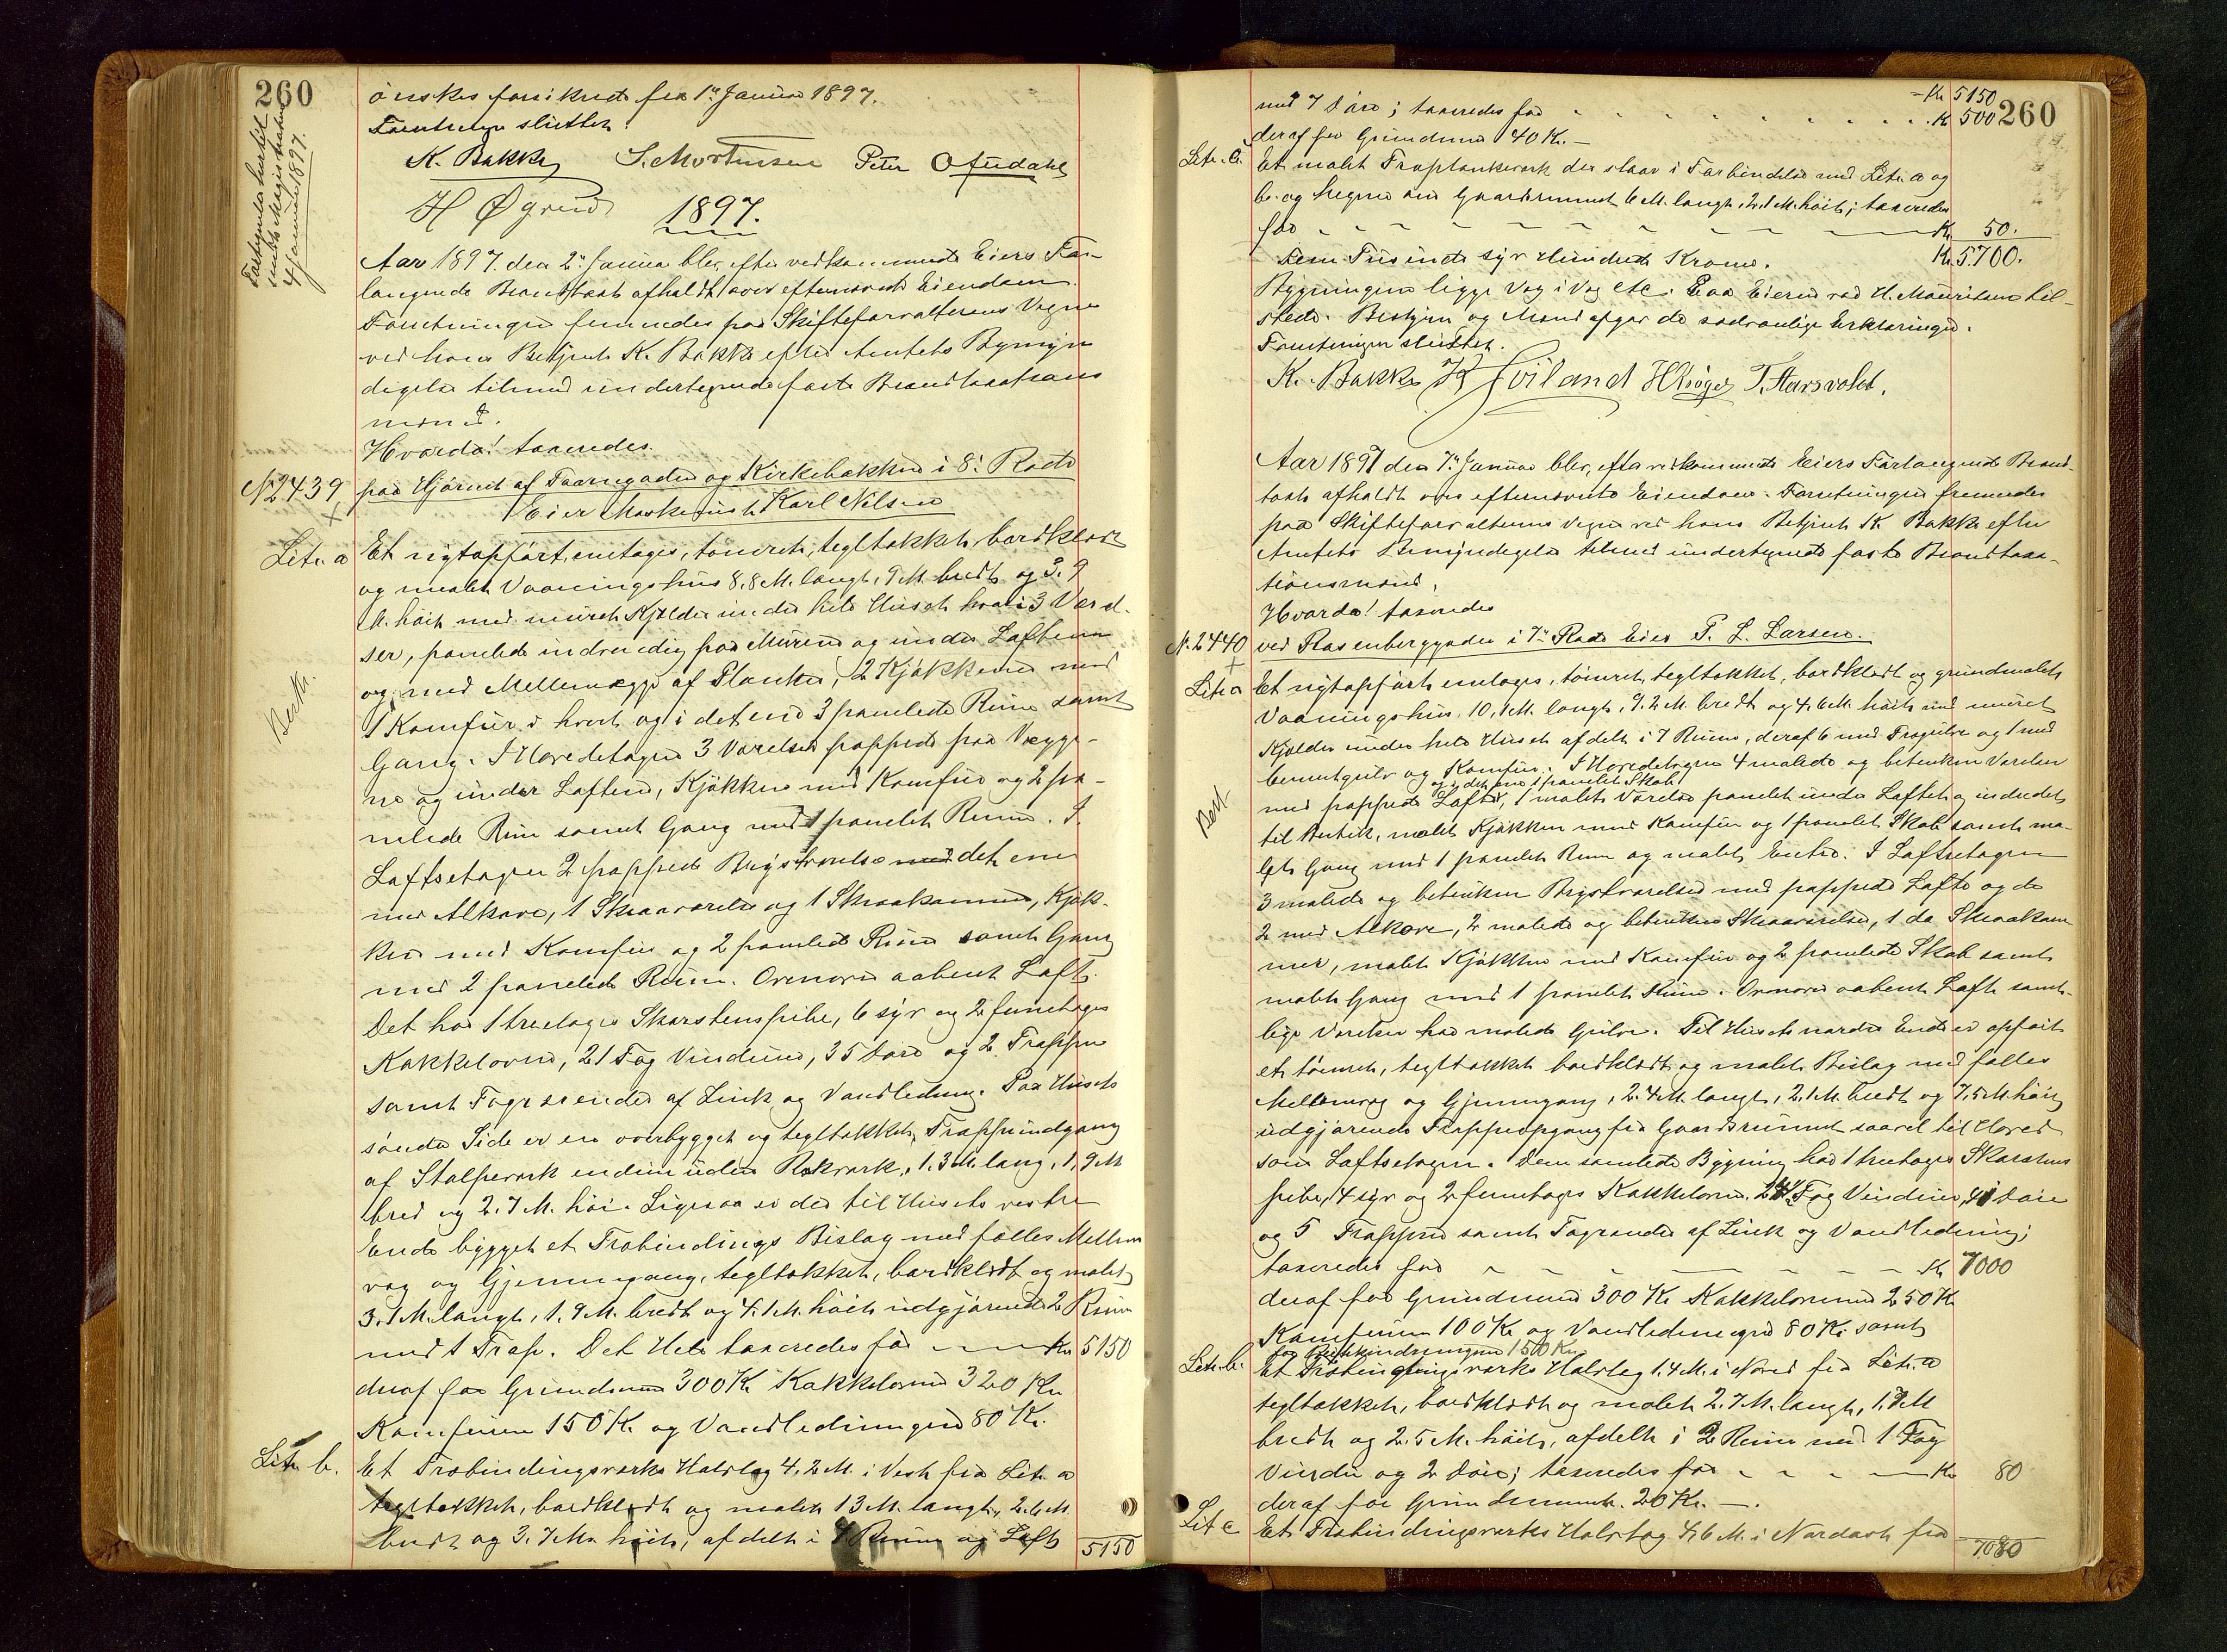 260
ønskes forsikret fra 1ste Januar 1897.
Forretningen sluttet.
K. Bakke S. Mortensen Peter Ofstedahl
4 Januar 1897.
1897.
Aar 1897 den 2den Januar blev, efter vedkommende Eiers For-
langende Brandtaxt afholdt over efternævnte Eiendom.
Forretningen fremmedes paa Skifteforvalterens Vegne
ved hans Betjent K. Bakke efter Amtets Bemyn
digelse tilmed undertegnede faste Brandtaxations
mænd.
Hvorda! taxeredes.
No 2439 paa Hjørnet af Taarngaden og Kirkebakken i 8de Rode
Eier Maskinist Karl Nilsen
Litr. a Et nytopført, enetages, tømret, tegltækket, bordklædt
og malet Vaaningshus 8.8 M. langt, 9 M. bredt og 3.9
M. høit med muret Kjelder under hele Huset hvori 3 Værel-
ser, panelede indvendig paa Murene og under Loftene
og med Mellemvægge af Planker, 2 Kjøkkener med
1 Komfur i hvert og i det ene 3 panelede Rum samt
Gang. I Hovedetagen 3 Værelser pappede paa Vægge-
ne og under Loftene, Kjøkken med Komfur og 2 pa-
nelede Rum samt Gang med 1 panelet Rum. I
Loftsetagen 2 pappede Brystværelser det ene
med Alkove, 1 Skraaværelse og 1 Skraakammer, Kjøk-
ken med Komfur og 2 panelede Rum samt Gang
med 2 panelede Rum. Ovenover aabent Loft.
Det har 1 treetages Skorstenspibe, 6 syv og 2 femetages
Kakkelovne, 21 Fag Vinduer, 35 Døre og 2 Trapper
samt Tagrender af Zink og Vandledning. Paa Husets
søndre Side er en overbygget og tegltækket Trappeindgang
af Stolpeværk endnu uden Rækværk, 1.3 M. lang, 1,9 M
bred og 2.7 M. høi. Ligesaa er der til Husets vestre
Ende bygget et Trebindings Bislag med fælles Mellem
væg og Gjennemgang, tegltækket, bordklædt og malet
3.1 M. langt, 1.9 M. bredt og 4.1 M. høit udgjørende 2 Rum
med 1 Trap. Det Hele taxeredes for Kr 5150
deraf for Grundmur 300 Kr Kakkelovnene 320 Kr
Komfurene 150 Kr. og Vandledningen 80 Kr.
Litr b. Et Trebindingsværks Halvtag 4.2 M. i Vest fra Litr. a
tegltækket, bordklædt og malet 13 M. langt, 2.6 M.
bredt og 3.7 M. høit, afdelt i 4 Rum og Loft
5150
260
Kr 5150
med 7 Døre; taxeredes for Kr 500
deraf for Grundmur 40 Kr. —
Litr. c. Et malet Træplankeværk der staar i Forbindelse med Litr. a og
b. og hegner om Gaardsrummet 6 M. langt, 2.1 M. høit; taxeredes
for Kr 50.
Fem Tusinde syv Hundrede Kroner. Kr. 5700.
Bygningen ligger Væg i Væg etc. Paa Eierens ved H. Mauritsen til-
stede. Bestyrer og Mænd afgav de sædvanlige Erklæringer.
Forretningen sluttet.
K. Bakke H. Høiland T. Aarsvoldt.
Aar 1897 den 7de Januar blev, efter vedkommende Eiers Forlangende Brand-
taxt afholdt over efternævnte Eiendom. Forretningen fremmedes
paa Skifteforvalterens Vegne ved hans Betjent K. Bakke efter
Amtets Bemyndigelse tilmed undertegnede faste Brandtaxa-
tionsmænd.
Hvorda! taxeredes
No 2440 ved Rosenberggaden i 7de Rode Eier P. L. Larsen.
Litr a Et nytopført enetages, tømret, tegltækket, bordklædt og grundmalet
Vaaningshus, 10,1 M. langt, 9.2 M. bredt og 4.6 M. høit med muret
Kjelder under hele Huset afdelt i 7 Rum, deraf 6 med Trægulv og 1 med
Cementgulv og Komfur. I Hovedetagen 4 malede og betrukne Værelser
og i det ene 1 panelet Skab
med pappede Lofter, 1 malet Værelse panelet under Loftet og indredet
til Butik, malet Kjøkken med Komfur og 1 panelet Skab samt ma-
let Gang med 1 panelet Rum og malet Entre. I Loftsetagen
3 malede og betrukne Brystværelser med pappede Lofte og de
2 med Alkove, 2 malede og betrukne Skraaværelser, 1 do Skraakam
mer, malet Kjøkken med Komfur og 2 panelede Skab samt
malet Gang med 1 panelet Rum. Ovenover aabent Loft samt-
lige Værelser har malede Gulve. Til Husets nordre Ende er opført
et tømret, tegltækket bordklædt og malet Bislag med fælles
Mellemvæg og Gjennemgang, 2.4 M. langt, 2.1 M. bredt og 7,5 M. høit
udgjørende Trappeopgang fra Gaardsrummet saavel til Hoved
som Loftsetagen. Den samlede Bygning har 1 treetages Skorstens
pibe, 4 syv og 2 femetages Kakkelovne, Fag Vinduer, 41 Døre
og 5 Trapper samt Tagrender af Zink og Vandledning;
taxeredes for Kr 7000
deraf for Grundmur 300 Kr Kakkelovnene 250 Kr
Komfuren 100 Kr og Vandledningen 80 Kr samt
for Butikindredningen 150 Kr
Litr. b. Et Trebindingsværks Halvtag 1.4 M. i Nord fra Litr. a
tegltækket, bordklædt og malet 2.7 M. langt, 1.7 M
bredt og 2.5 M. høit, afdelt i 2 Rum med 1 Fag
Vindu og 2 Døre; taxeredes for Kr 80
deraf for Grundmuren 20 Kr. —.
Lit c Et Trebindingsværks Halvtag 4,6 M. i Nordost fra
7080